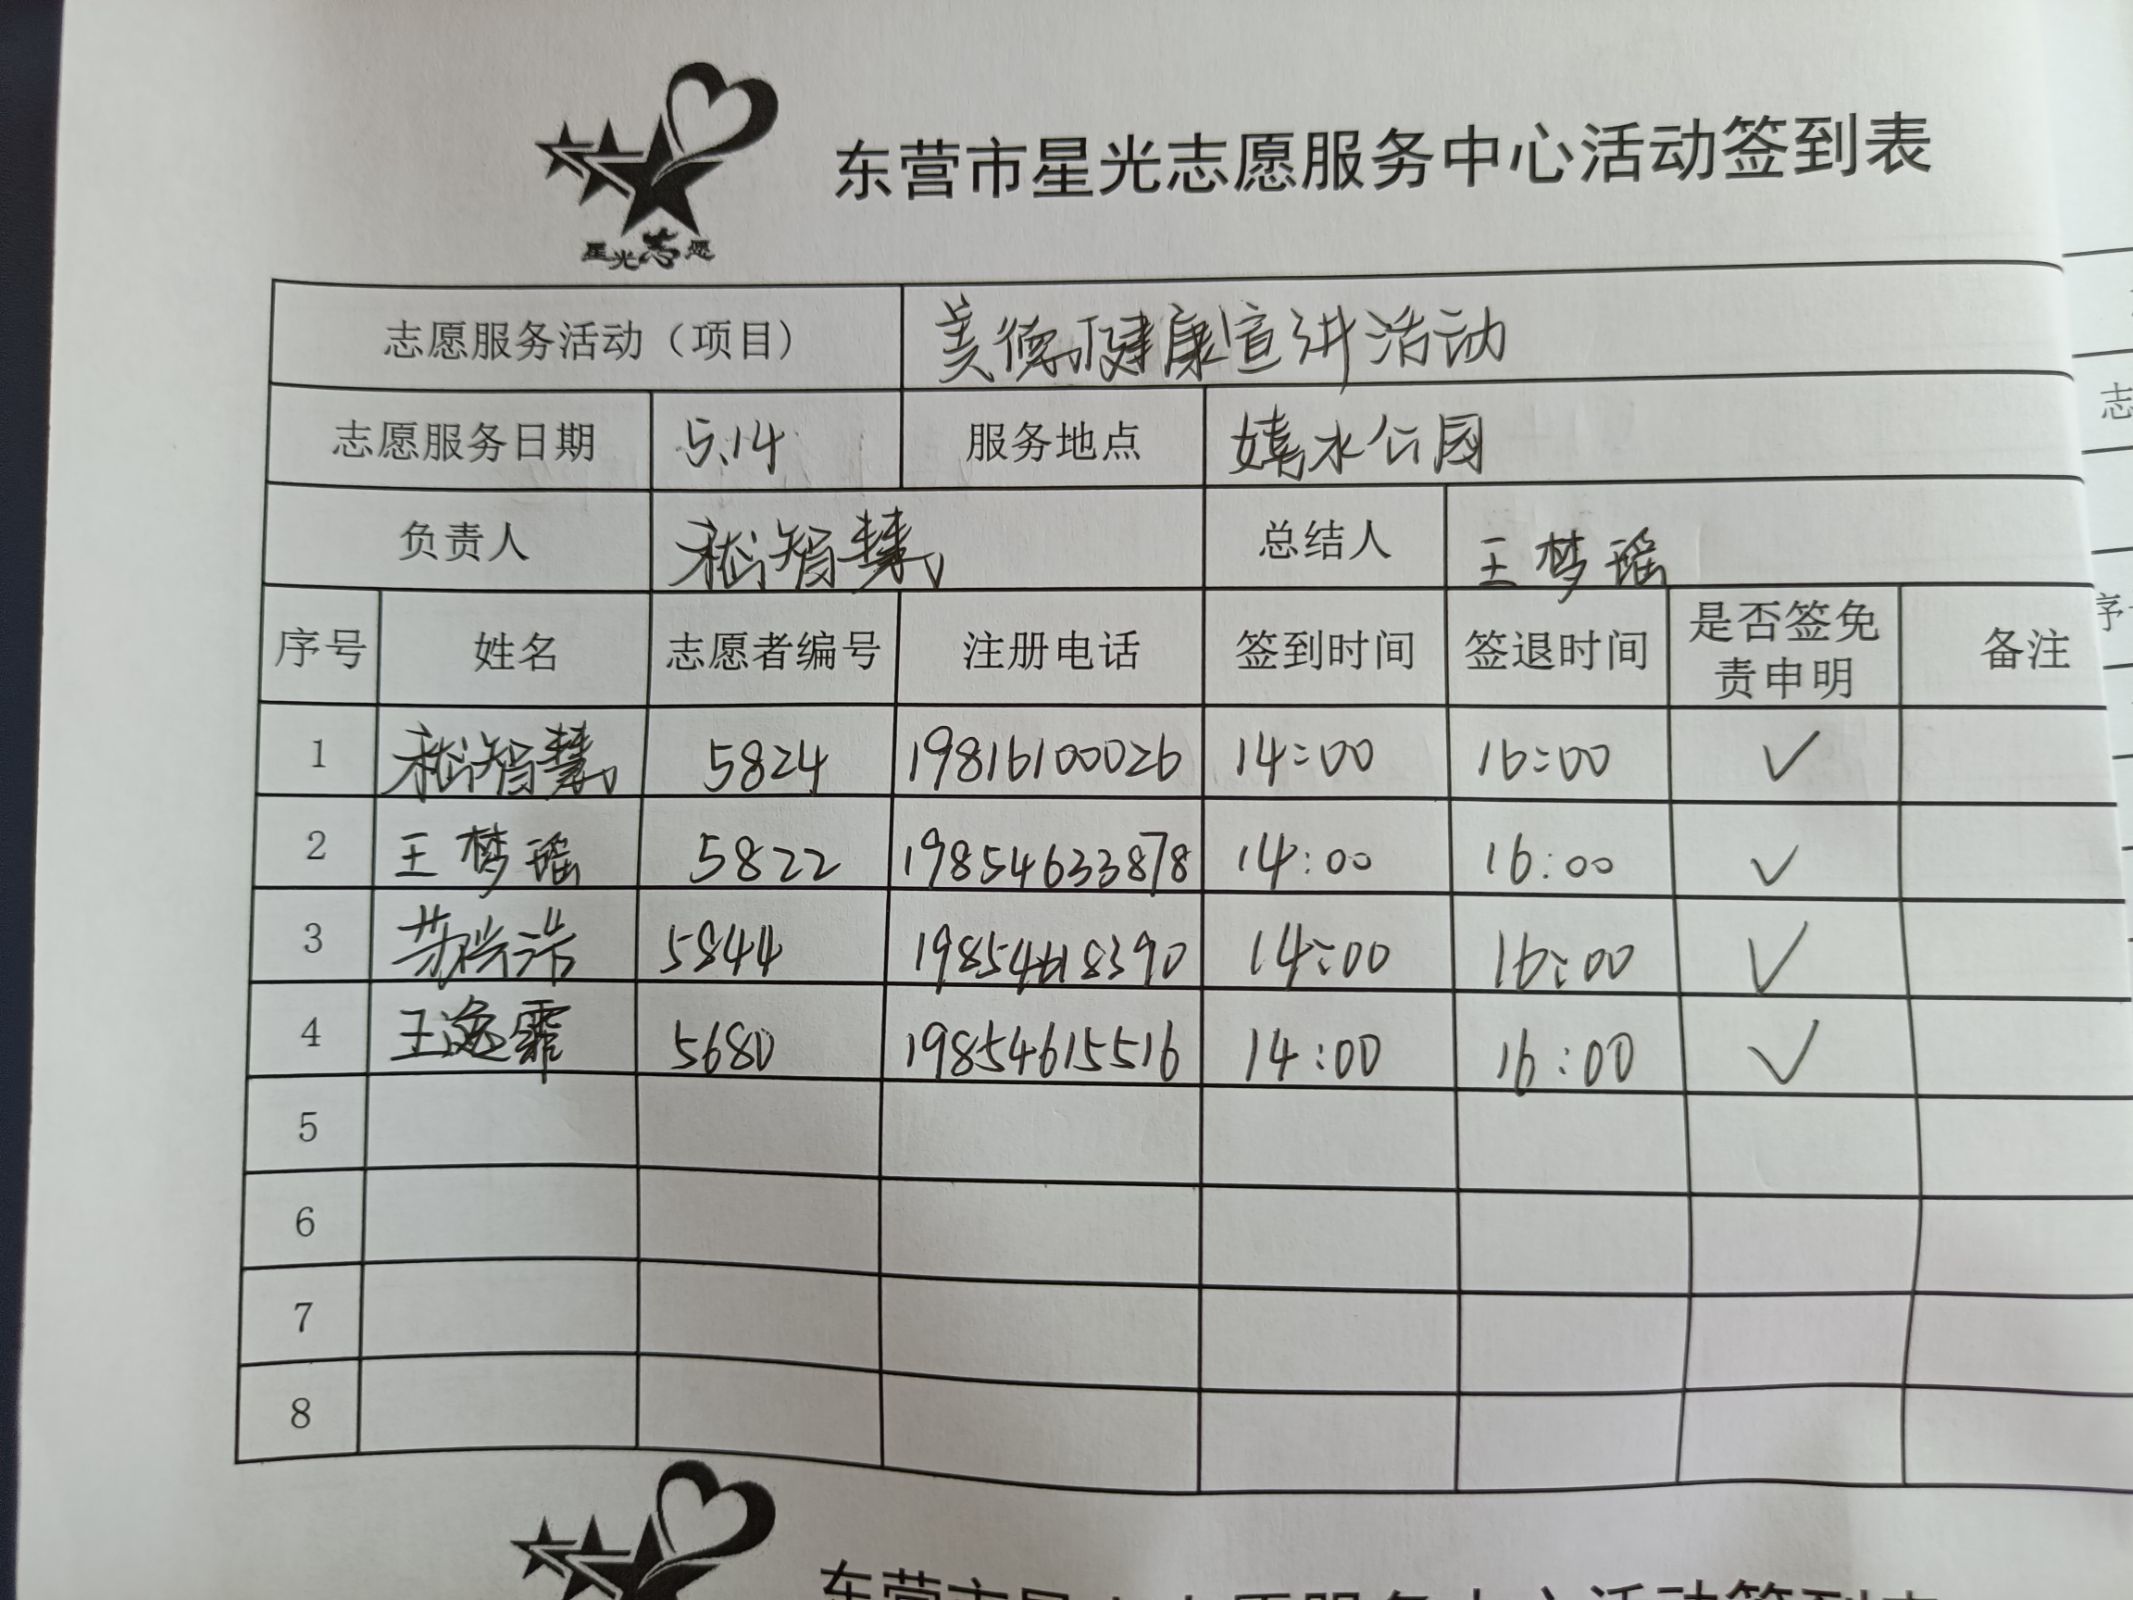 东营市星光志愿服务中心活动签到表
星光志愿
志愿服务活动（项目） 美德健康宣讲活动
志愿服务日期 5.14 服务地点 嬉水公园
负责人 嵇智慧 总结人 王梦瑶
序号 姓名 志愿者编号 注册电话 签到时间 签退时间 是否签免责申明 备注
1 嵇智慧 5824 19816100026 14:00 16:00 ✓
2 王梦瑶 5822 19854633878 14:00 16:00 ✓
3 5844 14:00 16:00 ✓
4 王逸霏 5680 19854615516 14:00 16:00 ✓
5
6
7
8
东营市星光志愿服务中心活动签到表